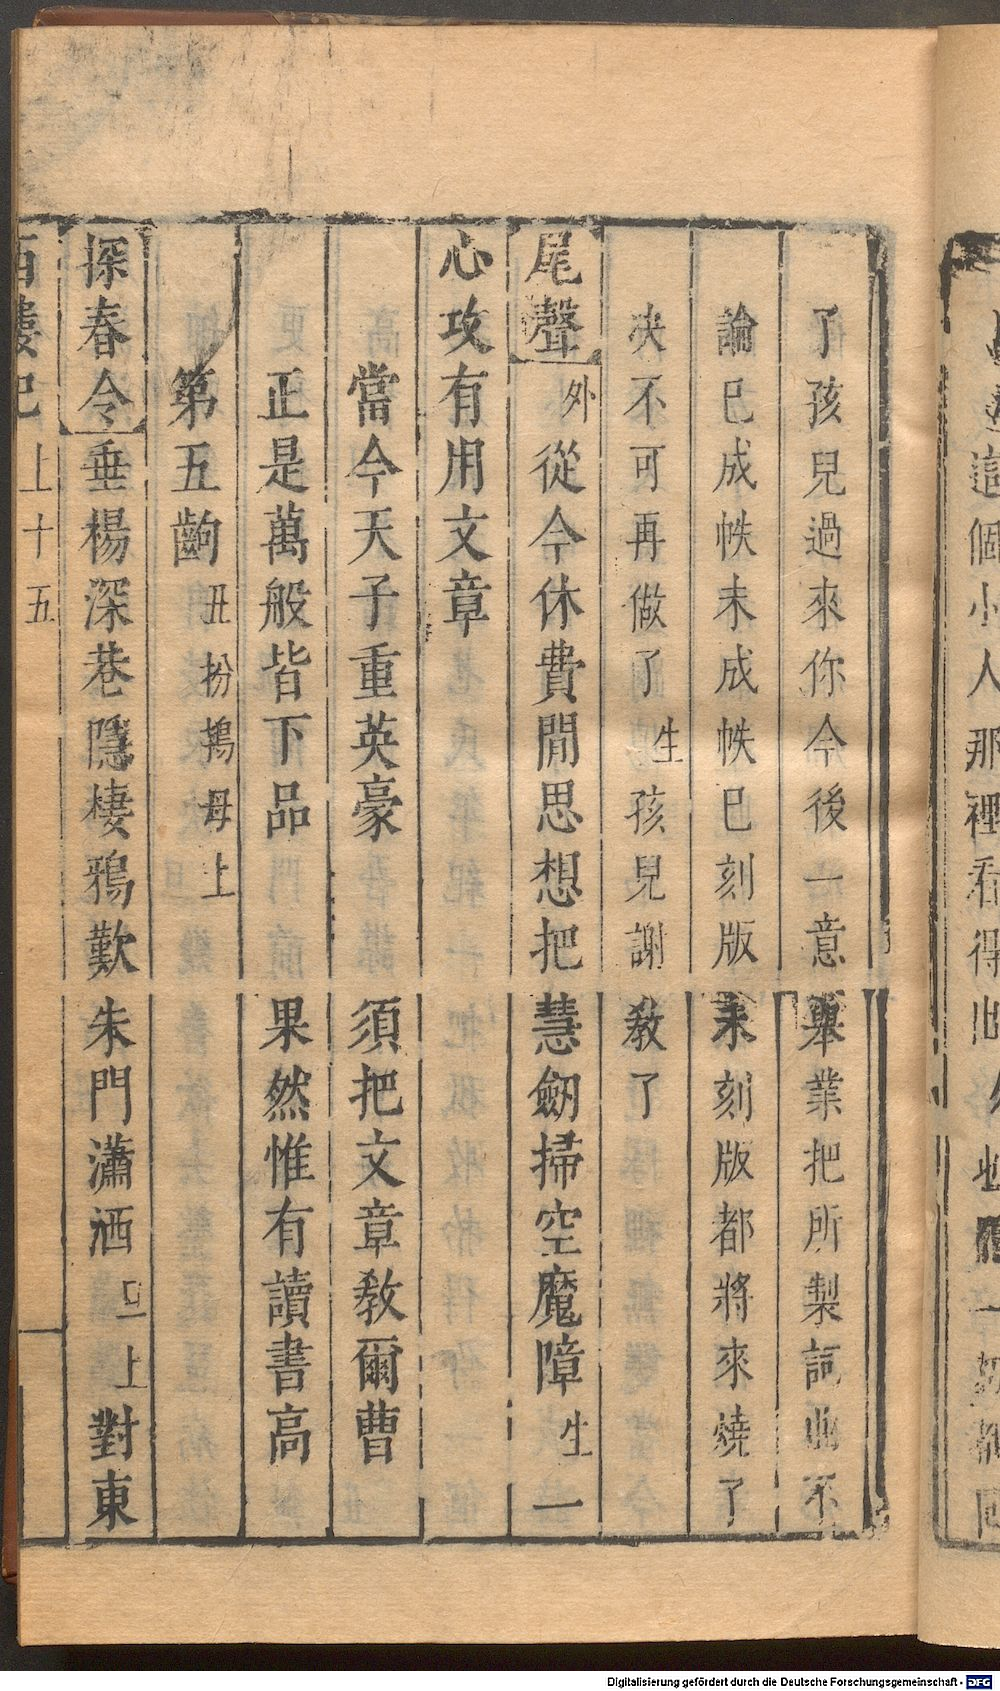 了孩兒過來你今後一意舉業把所製詞曲不
論已成帙未成帙已刻版未刻版都將來燒了
决不可再做了生孩兒謝教了
尾聲外從今休費閒思想把慧劒掃空魔障生一
心攻有用文章
當今天子重英豪 須把文章教爾曹
正是萬般皆下品 果然惟有讀書高
第五齣丑扮鴇母上
探春令垂楊深巷隱棲鴉歎朱門瀟洒旦上對東
西樓記 上十五
Digitalisierung gefördert durch die Deutsche Forschungsgemeinschaft - DFG